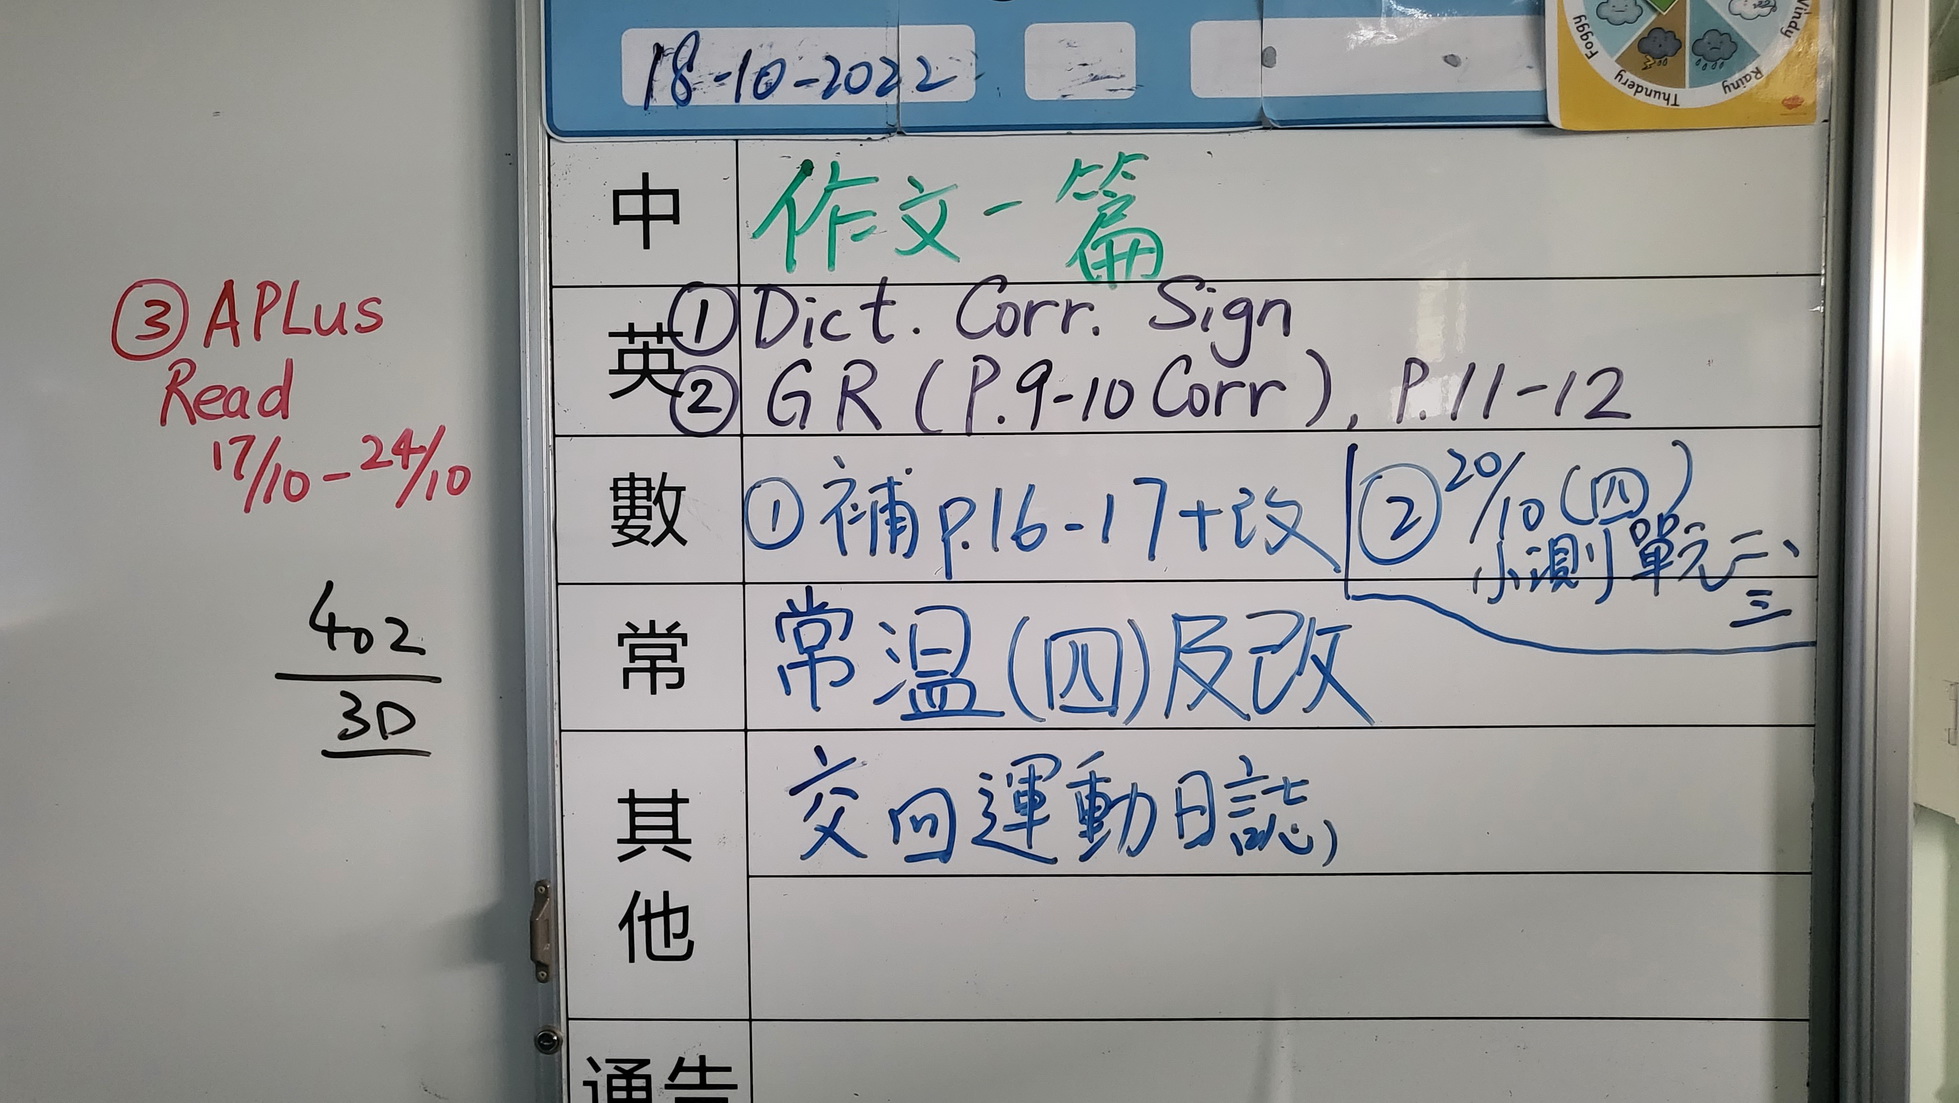 18-10-2022
Foggy
Thundery
Rainy
Windy
中
作文一篇
英
① Dict. Corr. Sign
② GR (P.9-10 Corr), P.11-12
③ APLus
Read
17/10 - 24/10
數
① 補 p.16-17+改
② 20/10 (四)
小測單元二、
三
常
常温(四)及改
402
3D
其他
交回運動日誌
通告